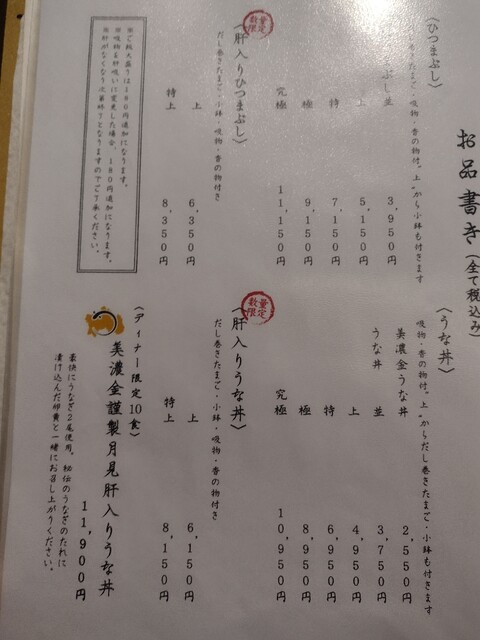 お品書き(全て税込み)
〈ひつまぶし〉
だし巻きたまご・吸物・香の物付。上〟から小鉢も付きます
ぶし 並 3,950円
上 5,150円
特上 7,150円
極上 9,150円
究極 11,150円
数量限定
〈肝入りひつまぶし〉
だし巻きたまご・小鉢・吸物・香の物付き
上 6,350円
特上 8,350円
※ご飯大盛りは180円追加になります。
※吸物を肝吸いに変更した場合、180円追加になります。
※肝がなくなり次第終了となりますのでご了承ください。
〈うな丼〉
吸物・香の物付。上〟からだし巻きたまご・小鉢も付きます
美濃金うな丼 2,550円
うな丼 並 3,750円
上 4,950円
特上 6,950円
極上 8,950円
究極 10,950円
数量限定
〈肝入りうな丼〉
だし巻きたまご・小鉢・吸物・香の物付き
上 6,150円
特上 8,150円
〈ディナー限定10食〉
美濃金謹製月見肝入りうな丼
11,900円
豪快にうなぎ2尾使用。秘伝のうなぎのたれに
漬け込んだ卵黄と一緒にお召し上がりください。